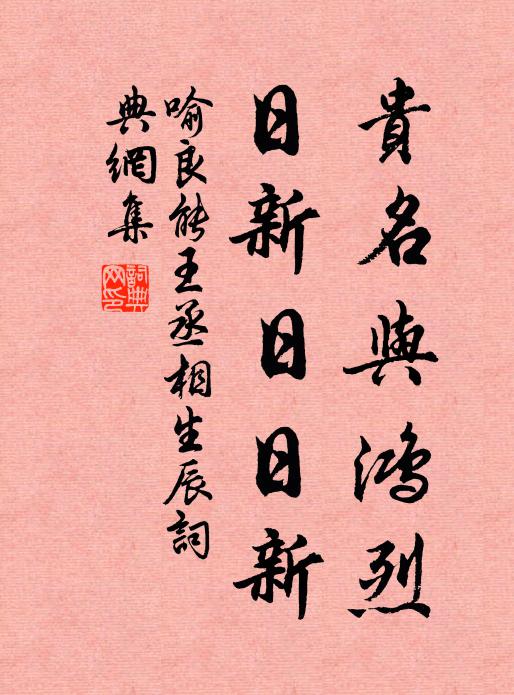 貴名與鴻烈
日新日日新
喻良能王丞相生辰詞
典網集
詞典网印